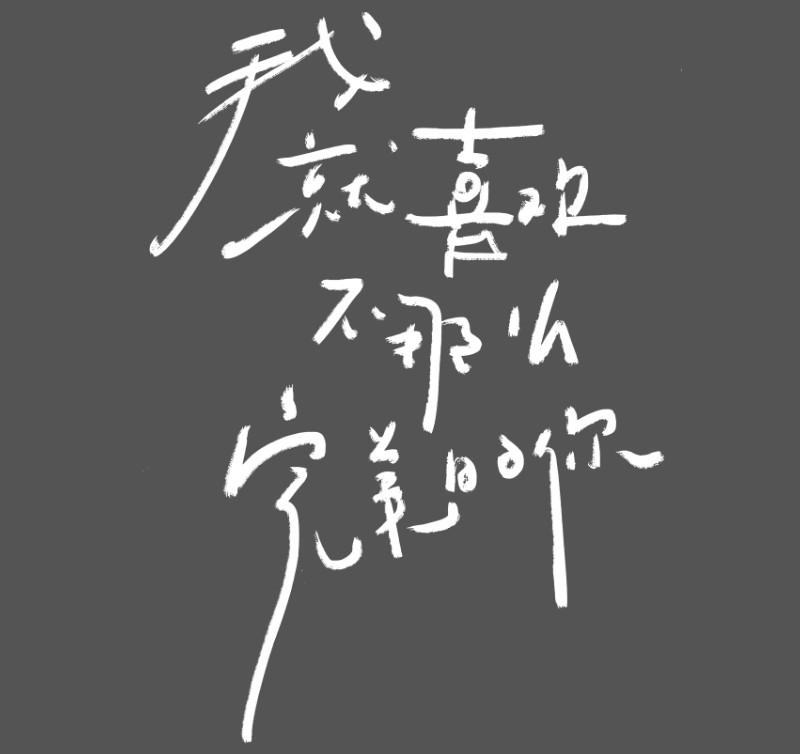 我
就喜欢
不那么
完美的你